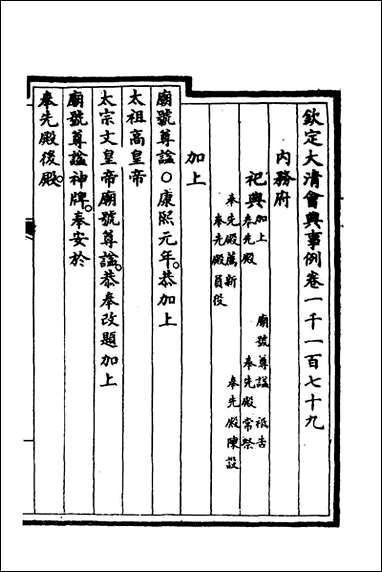 欽定大清會典事例卷一千一百七十九
內務府
祀典
加上
廟號尊諡祗告
奉先殿
奉先殿常祭
奉先殿薦新
奉先殿陳設
奉先殿員役
加上
廟號尊諡○康熙元年。恭加上
太祖高皇帝
太宗文皇帝廟號尊諡。恭奉改題加上
廟號尊諡神牌。奉安於
奉先殿後殿。